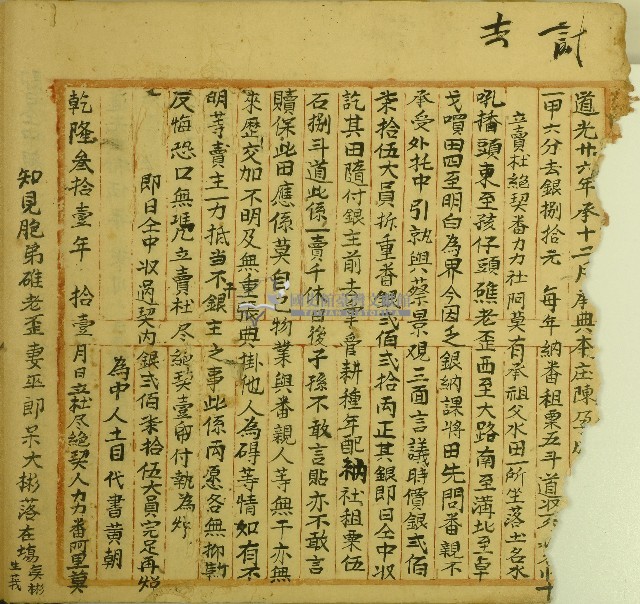 計去
道光廿六年承十二月
一甲六分去銀捌拾元 每年納番租粟五斗道
立賣杜絕契番力力社阿莫有承祖父水田一所坐落土名水
吼橋頭東至孩仔頭礁老歪西至大路南至溝北至卓
戈嘪田四至明白為界今因乏銀納課將田先問番親不
承受外托中引就與蔡景观三面言議時價銀貳佰
柒拾伍大員折重番銀貳佰貳拾两正其銀即日仝中收
訖其田隨付銀主前去掌管耕種年配納社租粟伍
石捌斗道此係一賣千休日後子孫不敢言貼亦不敢言
贖保此田應係莫自己物業與番親人等無干亦無
來歷交加不明及無重張典掛他人為碍等情如有不
明等賣主一力抵当不干銀主之事此係两愿各無抑勒
反悔恐口無憑立賣杜尽絕契壹帋付執為炤
即日仝中收過契内銀貳佰柒拾伍大員完足再炤
為中人土目 代書黄朝
乾隆叁拾壹年 拾壹月日立杜尽絕契人力力番阿里莫
知見胞弟礁老歪妻巫郎呆大彬落在